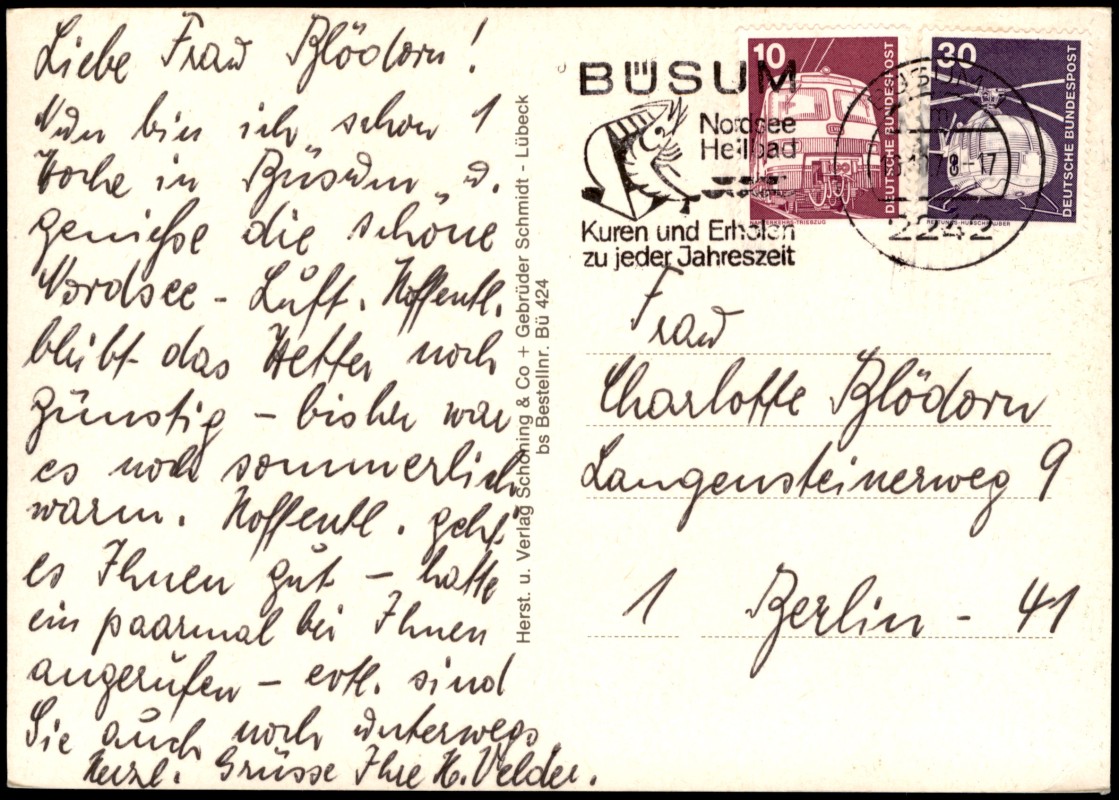 Liebe Frau Blödorn!
Nun bin ich schon 1
Woche in Büsum u.
genieße die schöne
Nordsee - Luft. Hoffentl.
bleibt das Wetter noch
günstig - bisher war
es noch sommerlich
warm. Hoffentl. geht
es Ihnen gut - hatte
ein paarmal bei Ihnen
angerufen - evtl. sind
Sie auch noch unterwegs.
Herzl. Grüsse Ihre H. Velder.
Herst. u. Verlag Schöning & Co + Gebrüder Schmidt - Lübeck
bs Bestellnr. Bü 424
BÜSUM
Nordsee
Heilbad
Kuren und Erholen
zu jeder Jahreszeit
10
DEUTSCHE BUNDESPOST
NAHVERKEHRS-TRIEBZUG
30
DEUTSCHE BUNDESPOST
RETTUNGS-HUBSCHRAUBER
BÜSUM
78-17
2242
Frau
Charlotte Blödorn
Langensteinerweg 9
1 Berlin - 41